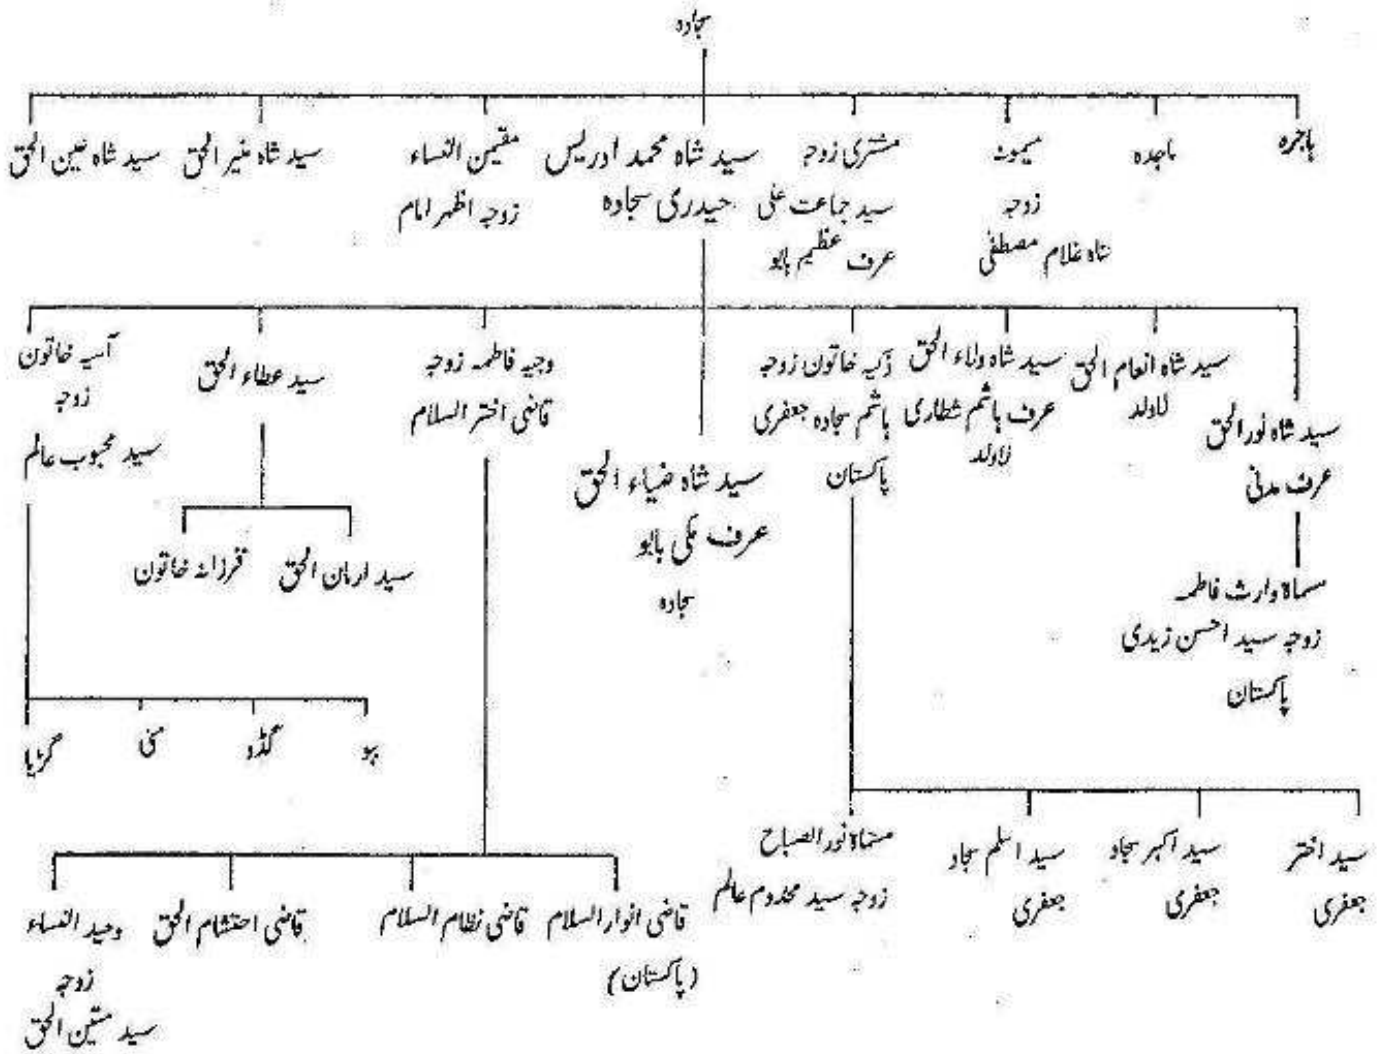 سجادہ
ہاجرہ
ماجدہ
میمونہ
زوجہ
شاہ غلام مصطفٰی
مشتری زوجہ
سید جماعت علی
عرف عظیم بابو
سید شاہ محمد ادریس
حیدری سجادہ
مقیمن النساء
زوجہ اظہر امام
سید شاہ منیر الحق
سید شاہ عین الحق
سید شاہ نور الحق
عرف مدنی
سید شاہ انعام الحق
لاولد
سید شاہ ولاء الحق
عرف ہاشم شطاری
لاولد
ذکیہ خاتون زوجہ
ہاشم سجادہ جعفری
پاکستان
سید شاہ ضیاء الحق
عرف مکی بابو
سجادہ
وجیہ فاطمہ زوجہ
قاضی اختر السلام
سید عطاء الحق
آسیہ خاتون
زوجہ
سید محبوب عالم
سید ارمان الحق
فرزانہ خاتون
مسماۃ وارث فاطمہ
زوجہ سید احسن زیدی
پاکستان
پپو
گڈو
منی
گڑیا
سید اختر
جعفری
سید اکبر سجاد
جعفری
سید اسلم سجاد
جعفری
مسماۃ نور الصباح
زوجہ سید مخدوم عالم
قاضی انوار السلام
(پاکستان)
قاضی نظام السلام
قاضی احتشام الحق
وحید النساء
زوجہ
سید متین الحق